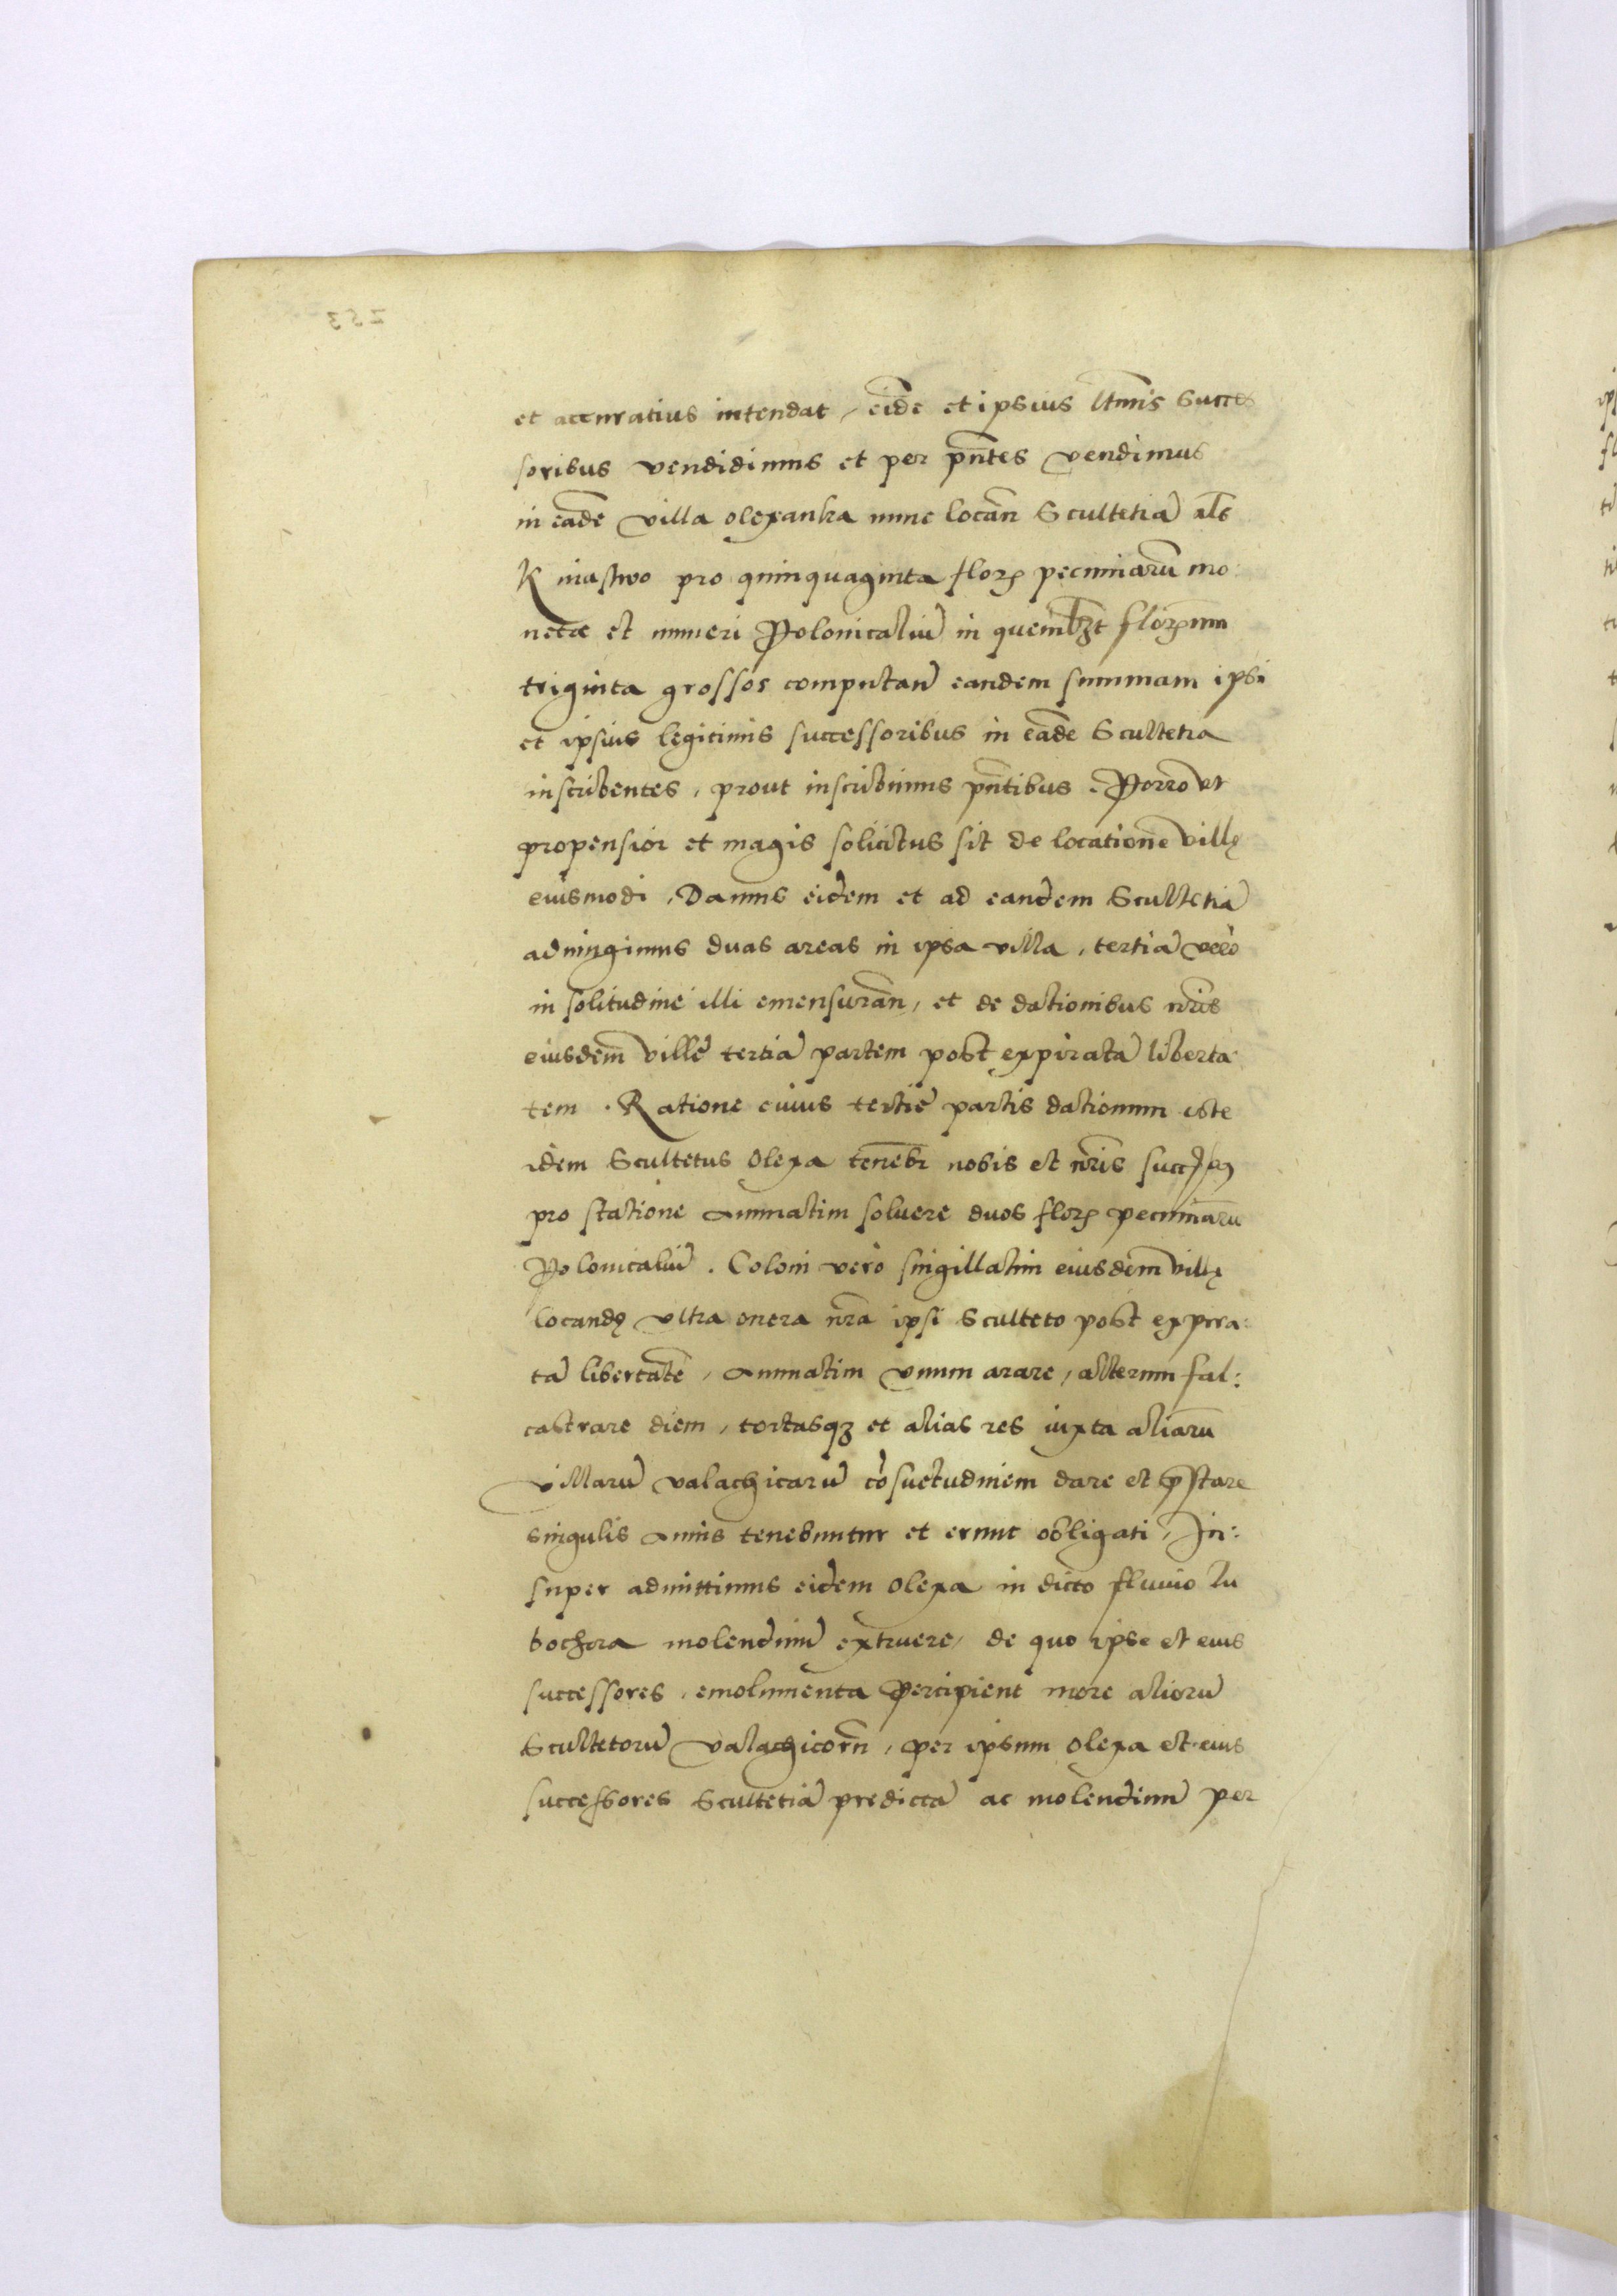 et accuratius intendat, eidē et ipsius ltimis Succes
soribus vendidimus et per pn̄tes vendimus
in eadē villa olexanka nunc locan̄ Scultetiā al̄s
Kniastwo pro quinquaginta flor pecuniarū mo:
netæ et numeri Polonicaliū in quemlibet florenum
triginta grossos computan̄ eandem summam ipsi
et ipsius legitimis successoribus in eadē Scultetia
inscribentes, prout inscribimus pn̄tibus. Porro ut
propensior et magis solicitus sit de locatione villę
eiusmodi, Damus eidem et ad eandem Scultetiā
adiungimus duas areas in ipsa villa, tertiā vero
in solitudine illi emensuran̄, et de dationibus nr̄is
eiusdem villę tertiā partem post expiratā liberta
tem. Ratione cuius tertię partis dationum iste
idem Scultetus Olexa teneb̄r nobis et nr̄is
pro statione annuatim soluere duos flor pecuniarū
Polonicaliū. Coloni vero singillatim eiusdem villę
locandę ultra onera nr̄a ipsi Sculteto post expira:
tā libertatē, annuatim unum arare, alterum fal:
castrare diem, tortasq; et alias res iuxta aliarū
villarū valachicarū cōsuetudinem dare et p̄stare
singulis annis tenebuntur et erunt obligati, In:
super admittimus eidem Olexa in dicto fluuio Lu
bochora molendinū extruere, de quo ipse et eius
successores, emolumenta percipient more aliorū
Scultetorū valachicorū, per ipsum Olexa et eius
successores Scultetiā predictā ac molendinū per
253